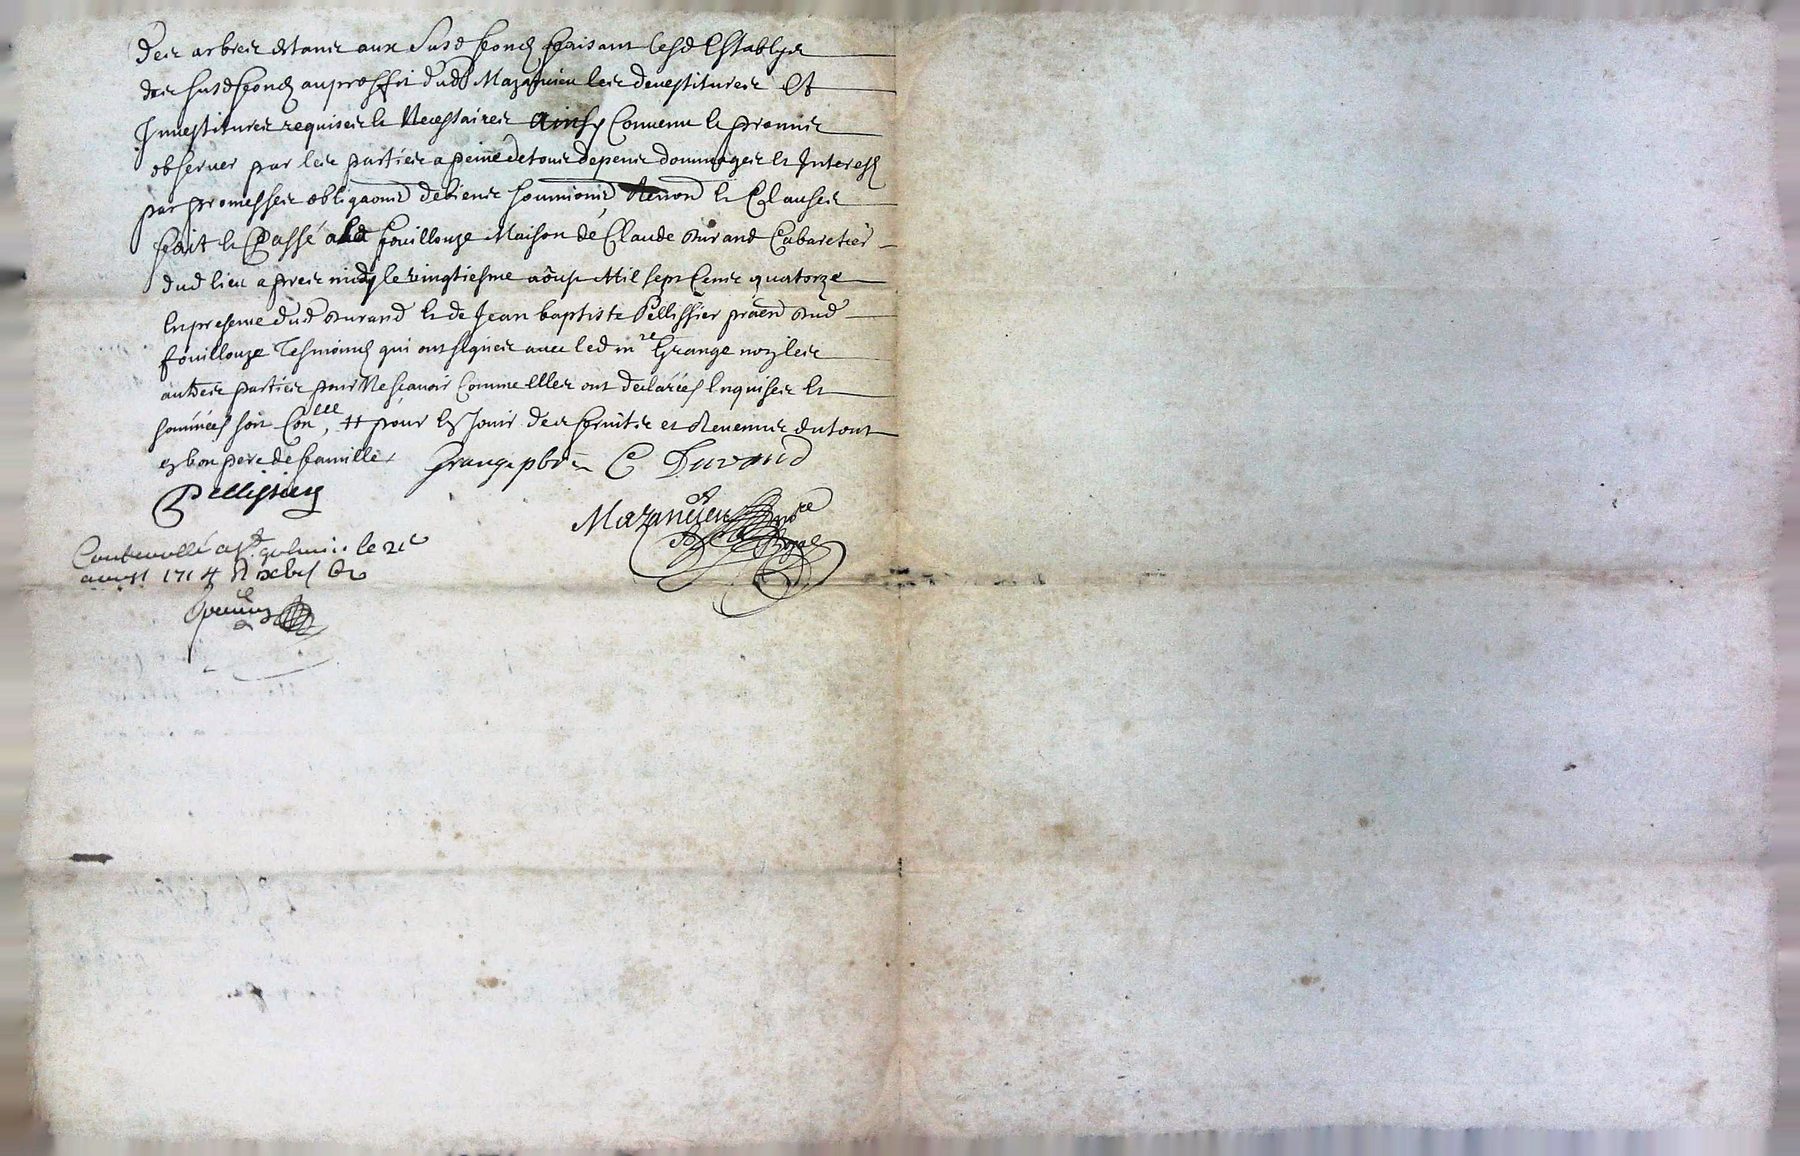 des arbres estans aux susd fonds faisant lesd Establyes
des susd fonds au proffit dud Mazancieu les devestitures Et
Jnvestitures requises et Necessaires ainsy Convenu et promis
observer par les parties a peine de tous depens dommages et Interests
par promesses obligaons de biens soummions Renon et Clauses
fait et Passé alad fouillouze Maison de Claude Durand Cabaretier
dud lieu apres midy le vingtiesme aoust Mil sept Cens quatorze
En presence dud Durand et de Jean baptiste Pellissier dud
fouillouze Tesmoins qui ont signes avec led mre Grange non les
autres parties pour Ne scavoir Comme Elles ont declarées Enquises et
sommées soit Conlle, ++ pour Es Jouir des fruits et Revenus du tout
en bon pere de famille
Grange pbre C Durand
Pellissier
Mazancieu nore
Royal
Controollé a St galmier le 21e
aoust 1714